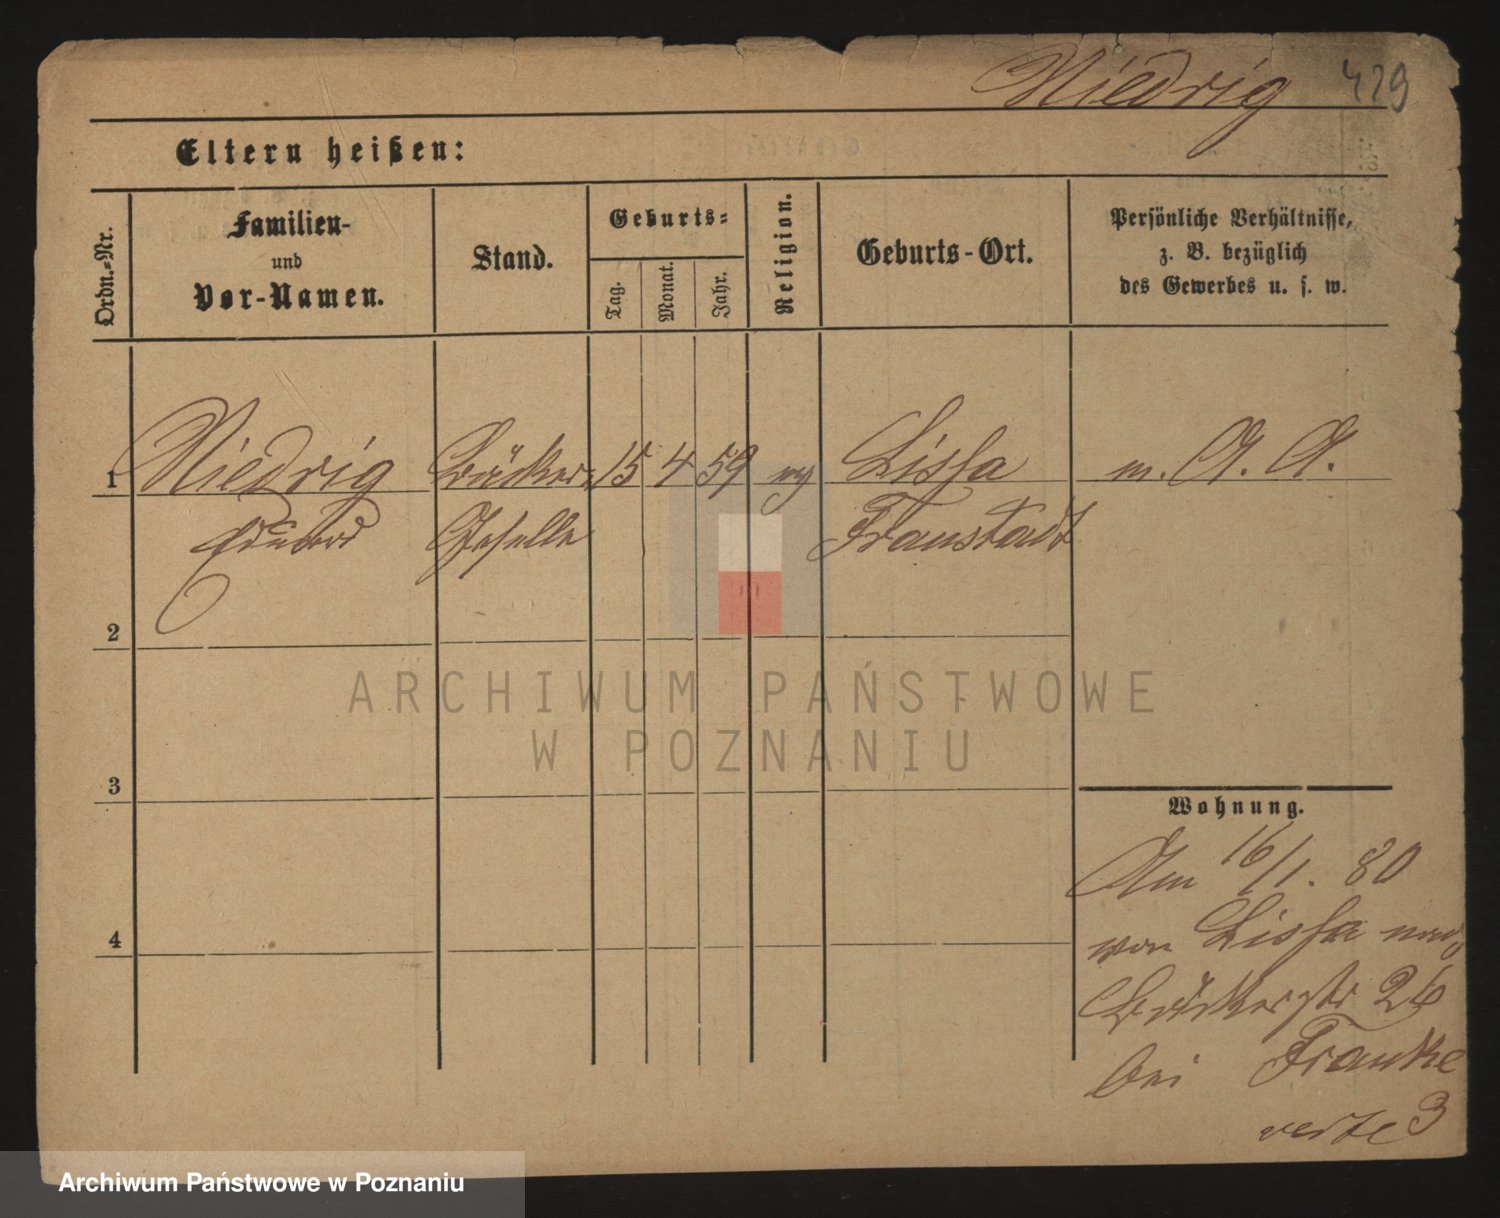 Niedrig 429
Eltern heißen:
Ordn.-Nr.
Familien-
und
Vor-Namen.
Stand.
Geburts-
Tag.
Monat.
Jahr.
Religion.
Geburts-Ort.
Persönliche Verhältnisse,
z. B. bezüglich
des Gewerbes u. s. w.
1 Niedrig Bäcker- 15 4 59 ev Lissa m. A. A.
Eduard Geselle Fraustadt
2
3
4
Wohnung.
Am 16/1. 80
von Lissa nach
Bäckerstr 26
bei Franke
verte 3
ARCHIWUM PAŃSTWOWE
W POZNANIU
Archiwum Państwowe w Poznaniu